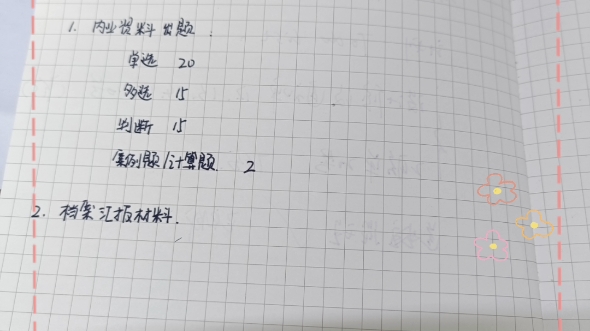 1. 内业资料出题:
单选 20
多选 15
判断 15
案例题/计算题. 2
2. 档案汇报材料.